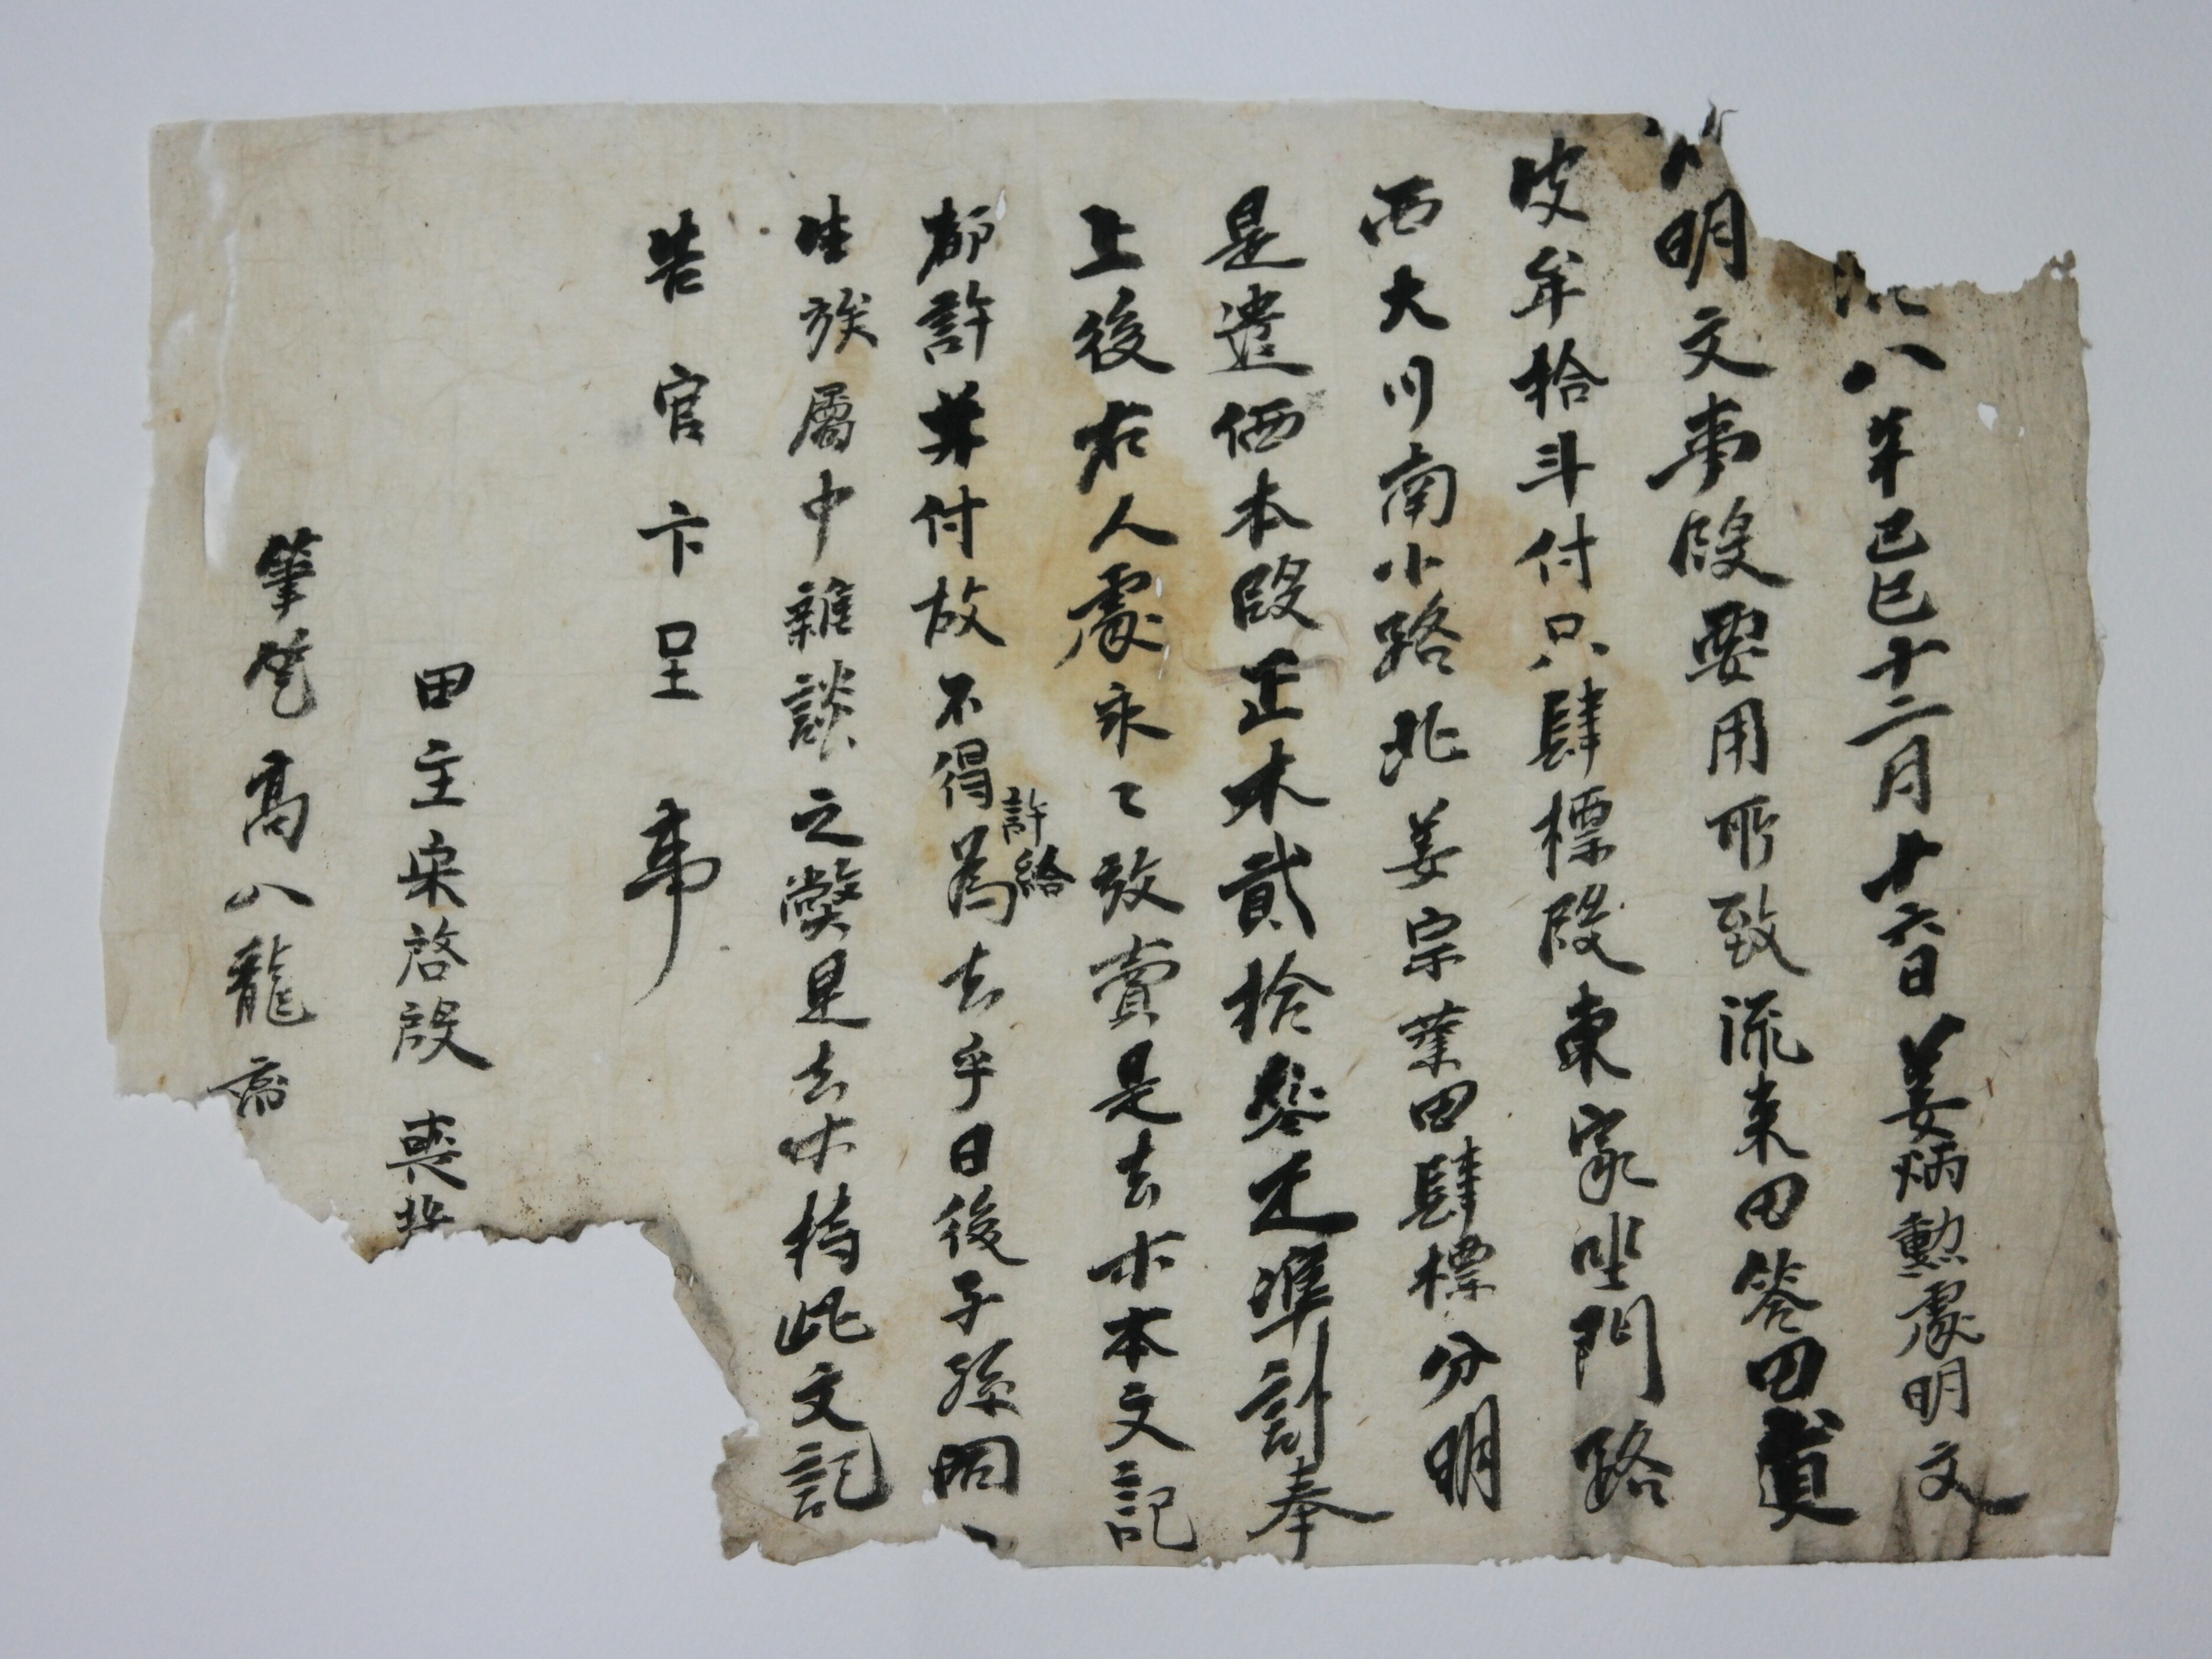 八年己巳十二月十六日姜炳勲處明文
明文事段要用所致流来田答田貳
皮牟拾斗付只肆標段東家坐門路
西大川南小路北姜宗業田肆標分明
是遣価本段正木貳拾叅疋準計奉
上後右人處永〻放賣是去乎本文記
都許并付故不得許給為去乎日後子孫同
生族属中雜談之弊是去乎持此文記
告官卞呈事
田主宋啓殷喪
筆執高八龍